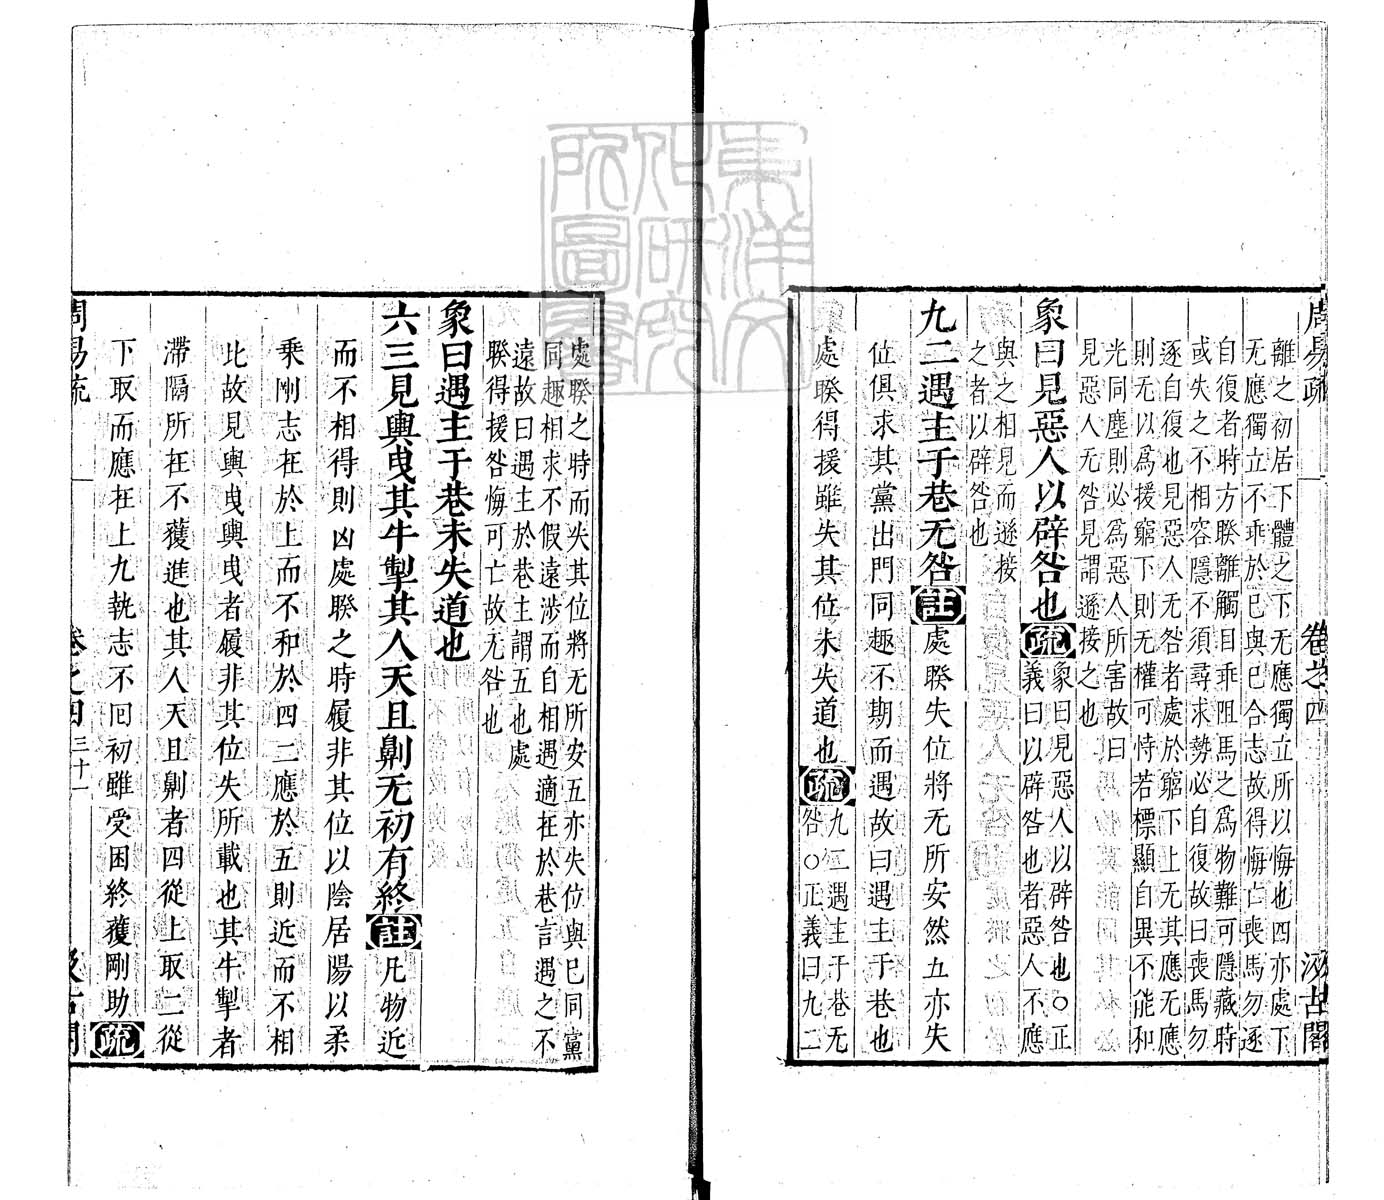 周易疏 卷之四 汲古閣
離之初居下體之下无應獨立所以悔也四亦處下
无應獨立不乖於已與已合志故得悔亡喪馬勿逐
自復者時方睽離觸目乖阻馬之爲物難可隱藏時
或失之不相容隱不須尋求勢必自復故曰喪馬勿
逐自復也見惡人无咎者處於窮下上无其應无應
則无以爲援窮下則无權可恃若標顯自異不能和
光同塵則必爲惡人所害故曰
見惡人无咎見謂遜接之也
象曰見惡人以辟咎也疏象曰見惡人以辟咎也○正
義曰以辟咎也者惡人不應
與之相見而遜接
之者以辟咎也
九二遇主于巷无咎註處睽失位將无所安然五亦失
位俱求其黨出門同趣不期而遇故曰遇主于巷也
處睽得援雖失其位未失道也疏九二遇主于巷无
咎○正義曰九二
處睽之時而失其位將无所安五亦失位與已同黨
同趣相求不假遠涉而自相遇適在於巷言遇之不
遠故曰遇主於巷主謂五也處
睽得援咎悔可亡故无咎也
象曰遇主于巷未失道也
六三見輿曳其牛掣其人天且劓无初有終註凡物近
而不相得則凶處睽之時履非其位以陰居陽以柔
乘剛志在於上而不和於四二應於五則近而不相
比故見輿曳輿曳者履非其位失所載也其牛掣者
滯隔所在不獲進也其人天且劓者四從上取二從
下取而應在上九執志不回初雖受困終獲剛助疏
周易疏 卷之四 三十一 汲古閣
東洋文化研究所圖書